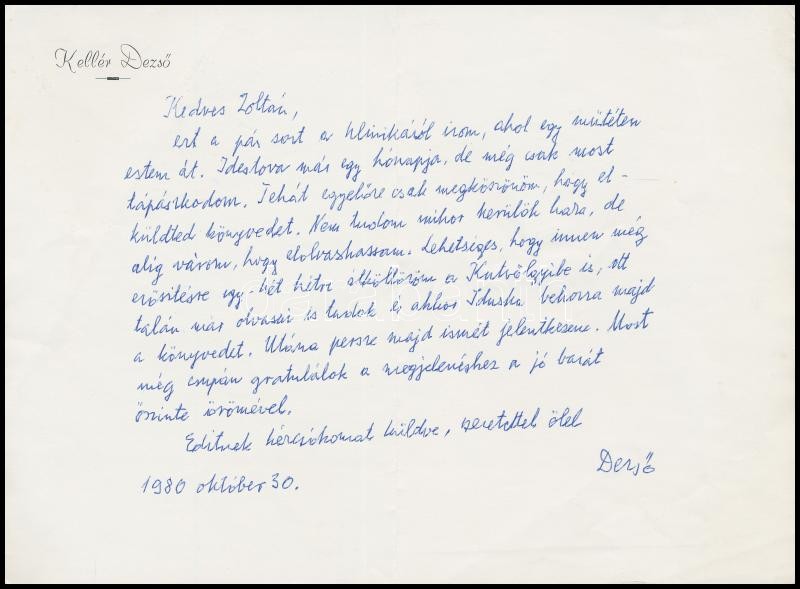 Kellér Dezső
Kedves Zoltán,
ezt a pár sort a klinikáról irom, ahol egy mütéten
estem át. Idestova már egy hónapja, de még csak most
tápászkodom. Tehát egyelőre csak megköszönöm, hogy el-
küldted könyvedet. Nem tudom mikor kerülök haza, de
alig várom, hogy elolvashassam. Lehetséges, hogy innen még
erősitésre egy-két hétre átköltözöm a Kutvölgyibe is, ott
talán már olvasni is tudok és akkor Iduska behozza majd
a könyvedet. Utána persze majd ismét jelentkezem. Most
még csupán gratulálok a megjelenéshez a jó barát
őszinte örömével.
Editnek kézcsókomat küldve, szeretettel ölel
Dezső
1980 október 30.